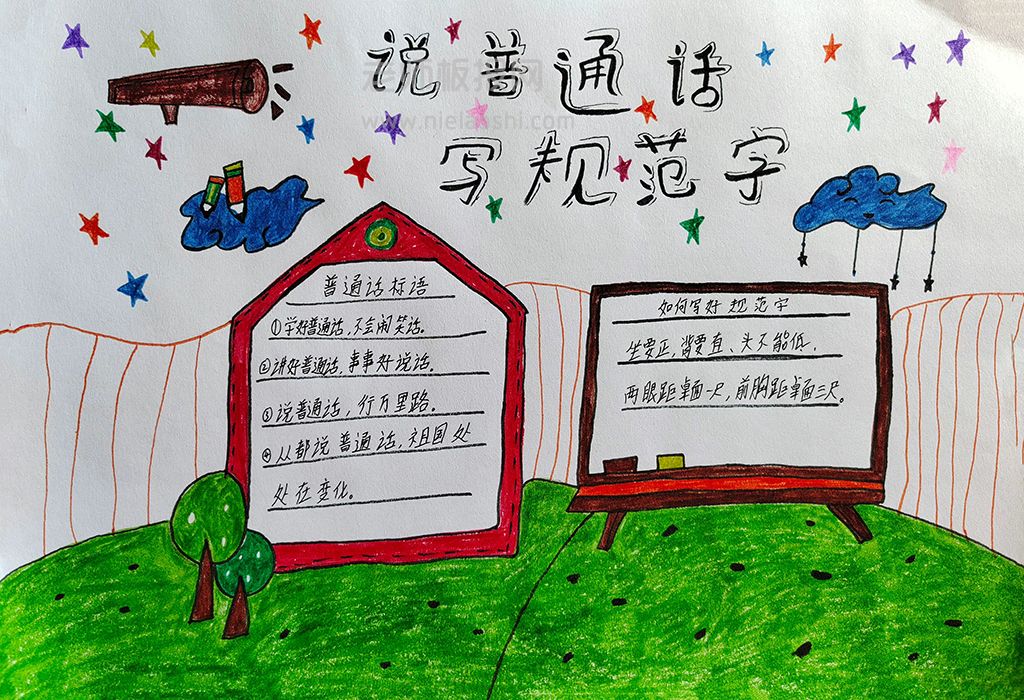 说普通话
写规范字
www.nielaoshi.com
普通话标语
①学好普通话,不会闹笑话。
②讲好普通话,事事好说话。
③说普通话,行万里路。
④从都说普通话,祖国处
处在变化。
如何写好规范字
坐要正,背要直、头不能低.
两眼距桌面一尺,前胸距桌面三尺。